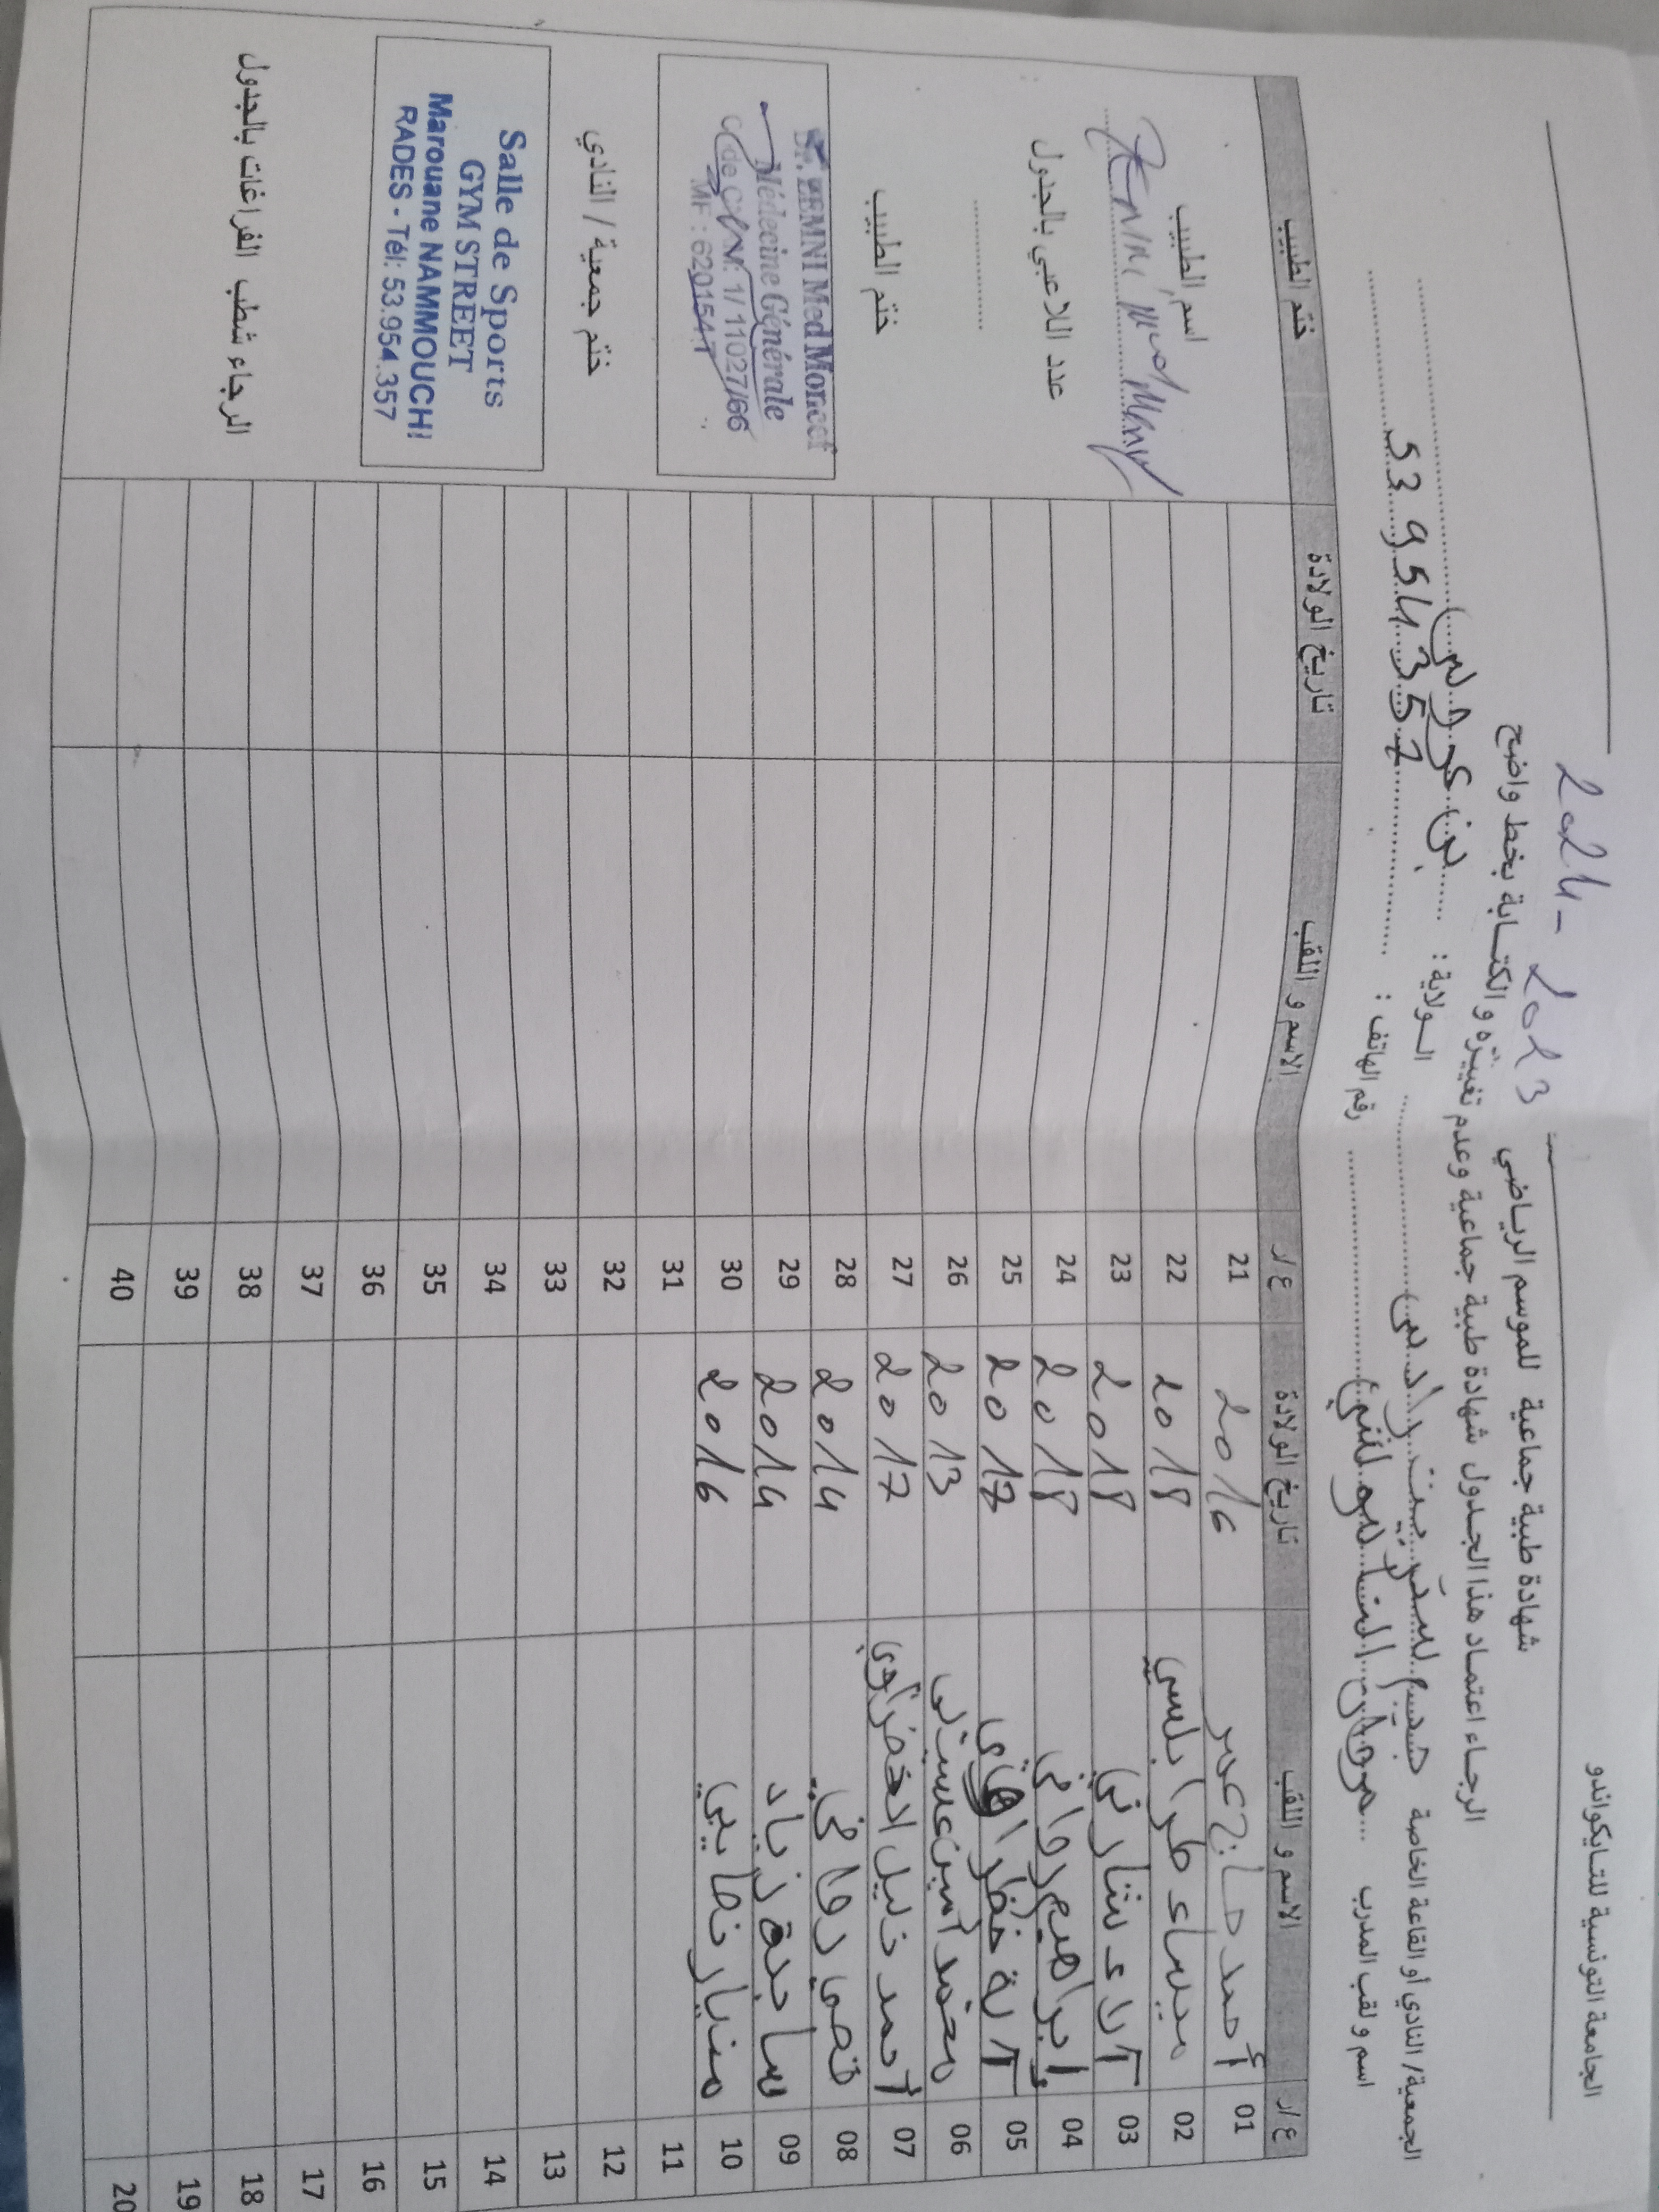 الجامعة التونسية للتايكواندو
شهادة طبية جماعية للموسم الرياضي 2023 - 2024
الرجاء اعتماد هذا الجدول شهادة طبية جماعية وعدم تغييره والكتابة بخط واضح
الجمعية/ النادي أو القاعة الخاصة جيم ستريت رادس الولاية : بن عروس
اسم و لقب المدرب مروان النموشي رقم الهاتف : 53954357
ع/ر الاسم و اللقب تاريخ الولادة ع/ر الاسم و اللقب تاريخ الولادة ختم الطبيب
01 أحمد حاج عمر 2016 21
02 ميساء طرابلسي 2018 22
03 آلاء شارني 2018 23
04 إبراهيم روافي 2018 24
05 آية 2017 25
06 محمد أمين 2013 26
07 أحمد خليل الخضراوي 2017 27
08 قصي روافي 2014 28
09 ساجدة زياد 2014 29
10 منيار نصايبي 2016 30
11 31
12 32
13 33
14 34
15 35
16 36
17 37
18 38
19 39
20 40
اسم الطبيب
Zemni Med Moncef
عدد اللاعبي بالجدول
ختم الطبيب
Dr. ZEMNI Med Moncef
Médecine Générale
Code CNAM: 1/11027/66
MF : 620154T
ختم جمعية / النادي
Salle de Sports
GYM STREET
Marouane NAMMOUCHI
RADES - Tél: 53.954.357
الرجاء شطب الفراغات بالجدول